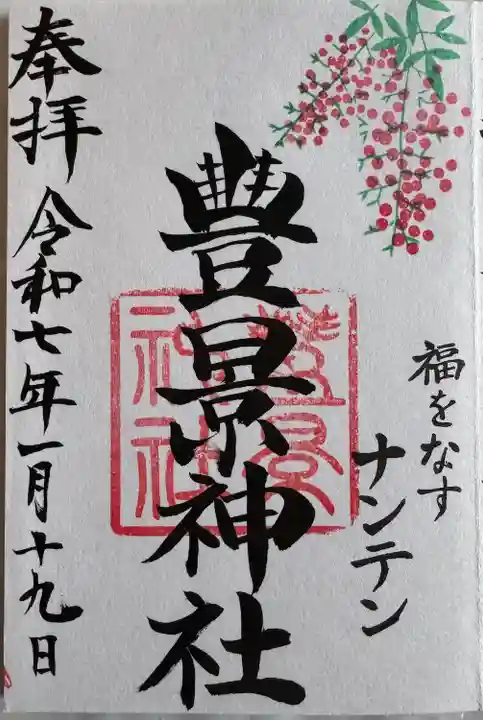 福をなす
ナンテン
豊景神社
豊景
神社
奉拝
令和七年一月十九日